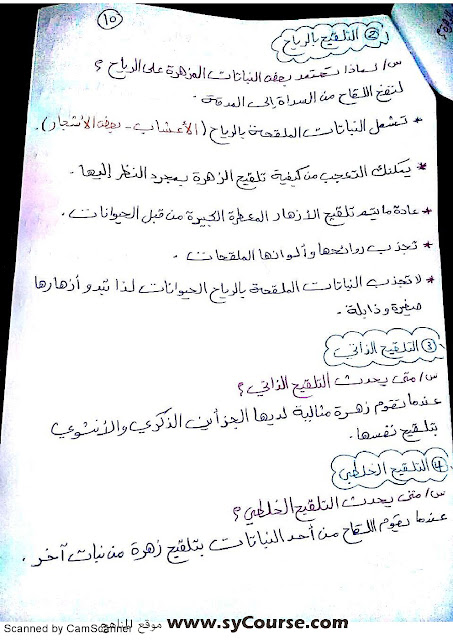 ١٥
② التلقيح بالرياح
س/ لماذا تعتمد بعض النباتات المزهرة على الرياح ؟
لنفخ اللقاح من السداة إلى المدقة.
* تشمل النباتات الملقحة بالرياح (الأعشاب - بعض الأشجار).
* يمكنك التعجب من كيفية تلقيح الزهرة بمجرد النظر إليها.
* عادة ما يتم تلقيح الأزهار المعطرة الكبيرة من قبل الحيوانات.
* تجذب روائحها وألوانها الملقحات.
* لا تجذب النباتات الملقحة بالرياح الحيوانات لذا تبدو أزهارها
صغيرة وذابلة.
③ التلقيح الذاتي
س/ متى يحدث التلقيح الذاتي ؟
عندما تقوم زهرة مثالية لديها الجزأين الذكري والأنثوي
بتلقيح نفسها.
④ التلقيح الخلطي
س/ متى يحدث التلقيح الخلطي ؟
عندما يقوم اللقاح من أحد النباتات بتلقيح زهرة من نبات آخر.
موقع المناهج www.syCourse.com
Scanned by CamScanner